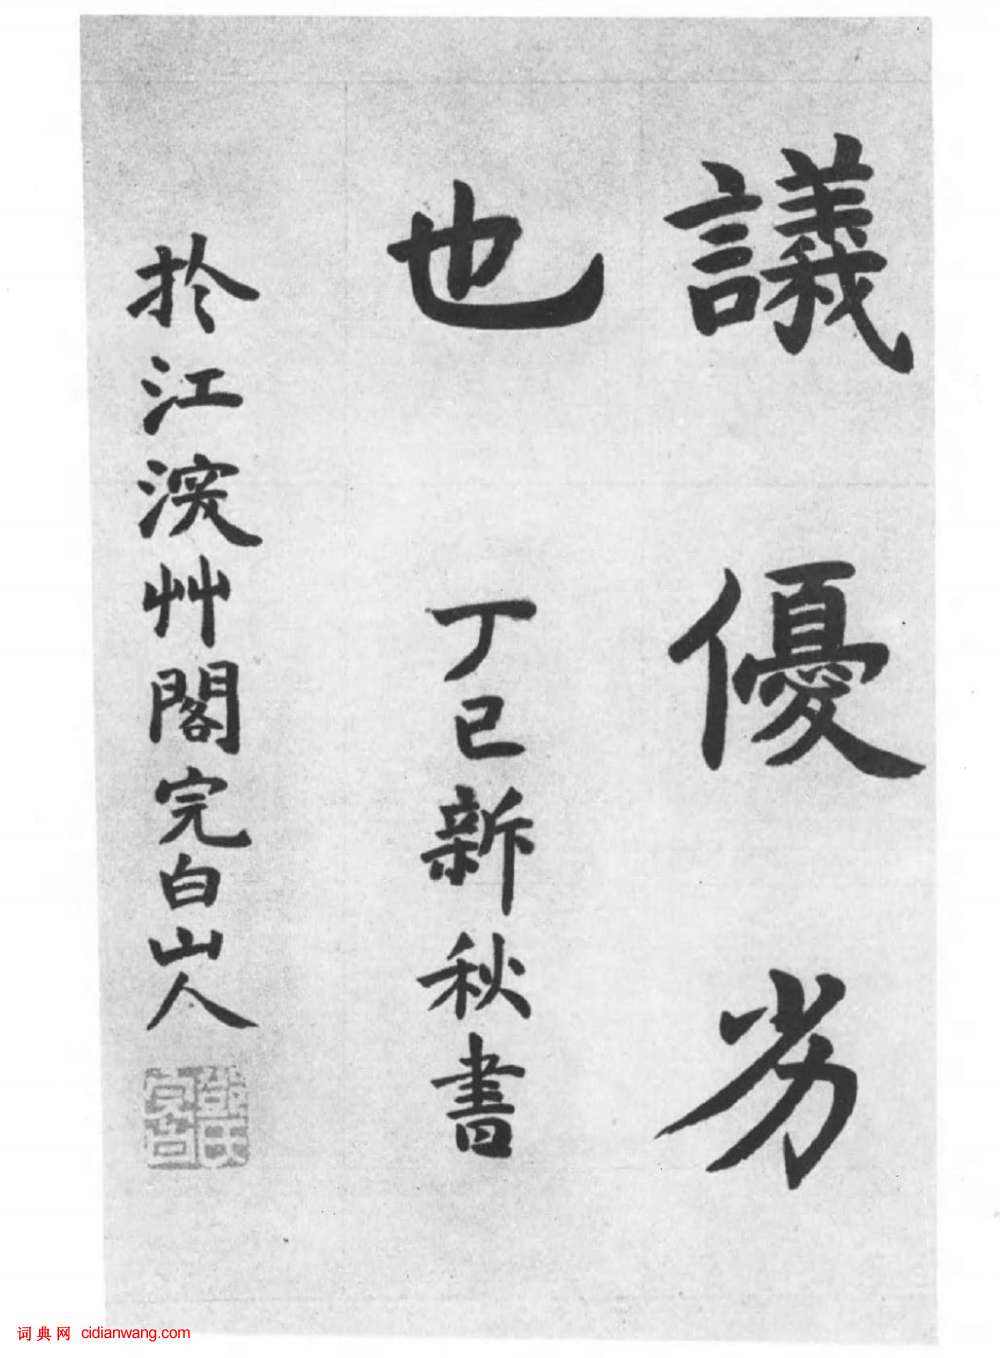 議優劣
也 丁巳新秋書
於江深艸閣完白山人
鄧氏
完白
词典网 cidianwang.com